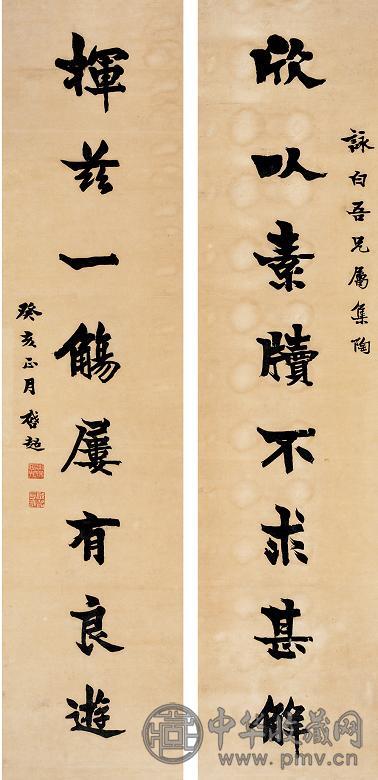 詠白吾兄屬集陶
欣以素牘不求甚解
揮茲一觴屢有良遊
癸亥正月啓超
中华收藏网
www.pmv.cn